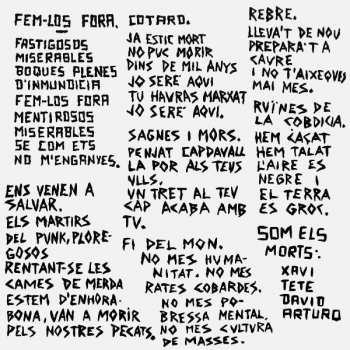 FEM-LOS FORA.
FASTIGOSOS
MISERABLES
BOQUES PLENES
D'INMUNDICIA
FEM-LOS FORA
MENTIROSOS
MISERABLES
SE COM ETS
NO M'ENGANYES.
ENS VENEN A
SALVAR.
ELS MARTIRS
DEL PUNK, PLORE-
GOSOS
RENTANT-SE LES
CAMES DE MERDA
ESTEM D'ENHORA-
BONA, VAN A MORIR
PELS NOSTRES PECATS.
COTARD.
JA ESTIC MORT
NO PUC MORIR
DINS DE MIL ANYS
JO SERE AQUI
TU HAURAS MARXAT
JO SERE AQUI.
SAGNES I MORS.
PENJAT CAPDAVALL
LA POR ALS TEUS
ULLS.
UN TRET AL TEU
CAP ACABA AMB
TV.
FI DEL MON.
NO MES HUMA-
NITAT. NO MES
RATES COBARDES.
NO MES PO-
BRESSA MENTAL.
NO MES CULTURA
DE MASSES.
REBRE.
LLEVA'T DE NOU
PREPARA'T A
CAURE
I NO T'AIXEQUES
MAI MES.
RUÏNES DE
LA COBDICIA.
HEM CAÇAT
HEM TALAT
L'AIRE ES
NEGRE I
EL TERRA
ES GROC.
SOM ELS
MORTS:.
XAVI
TETE
DAVID
ARTURO